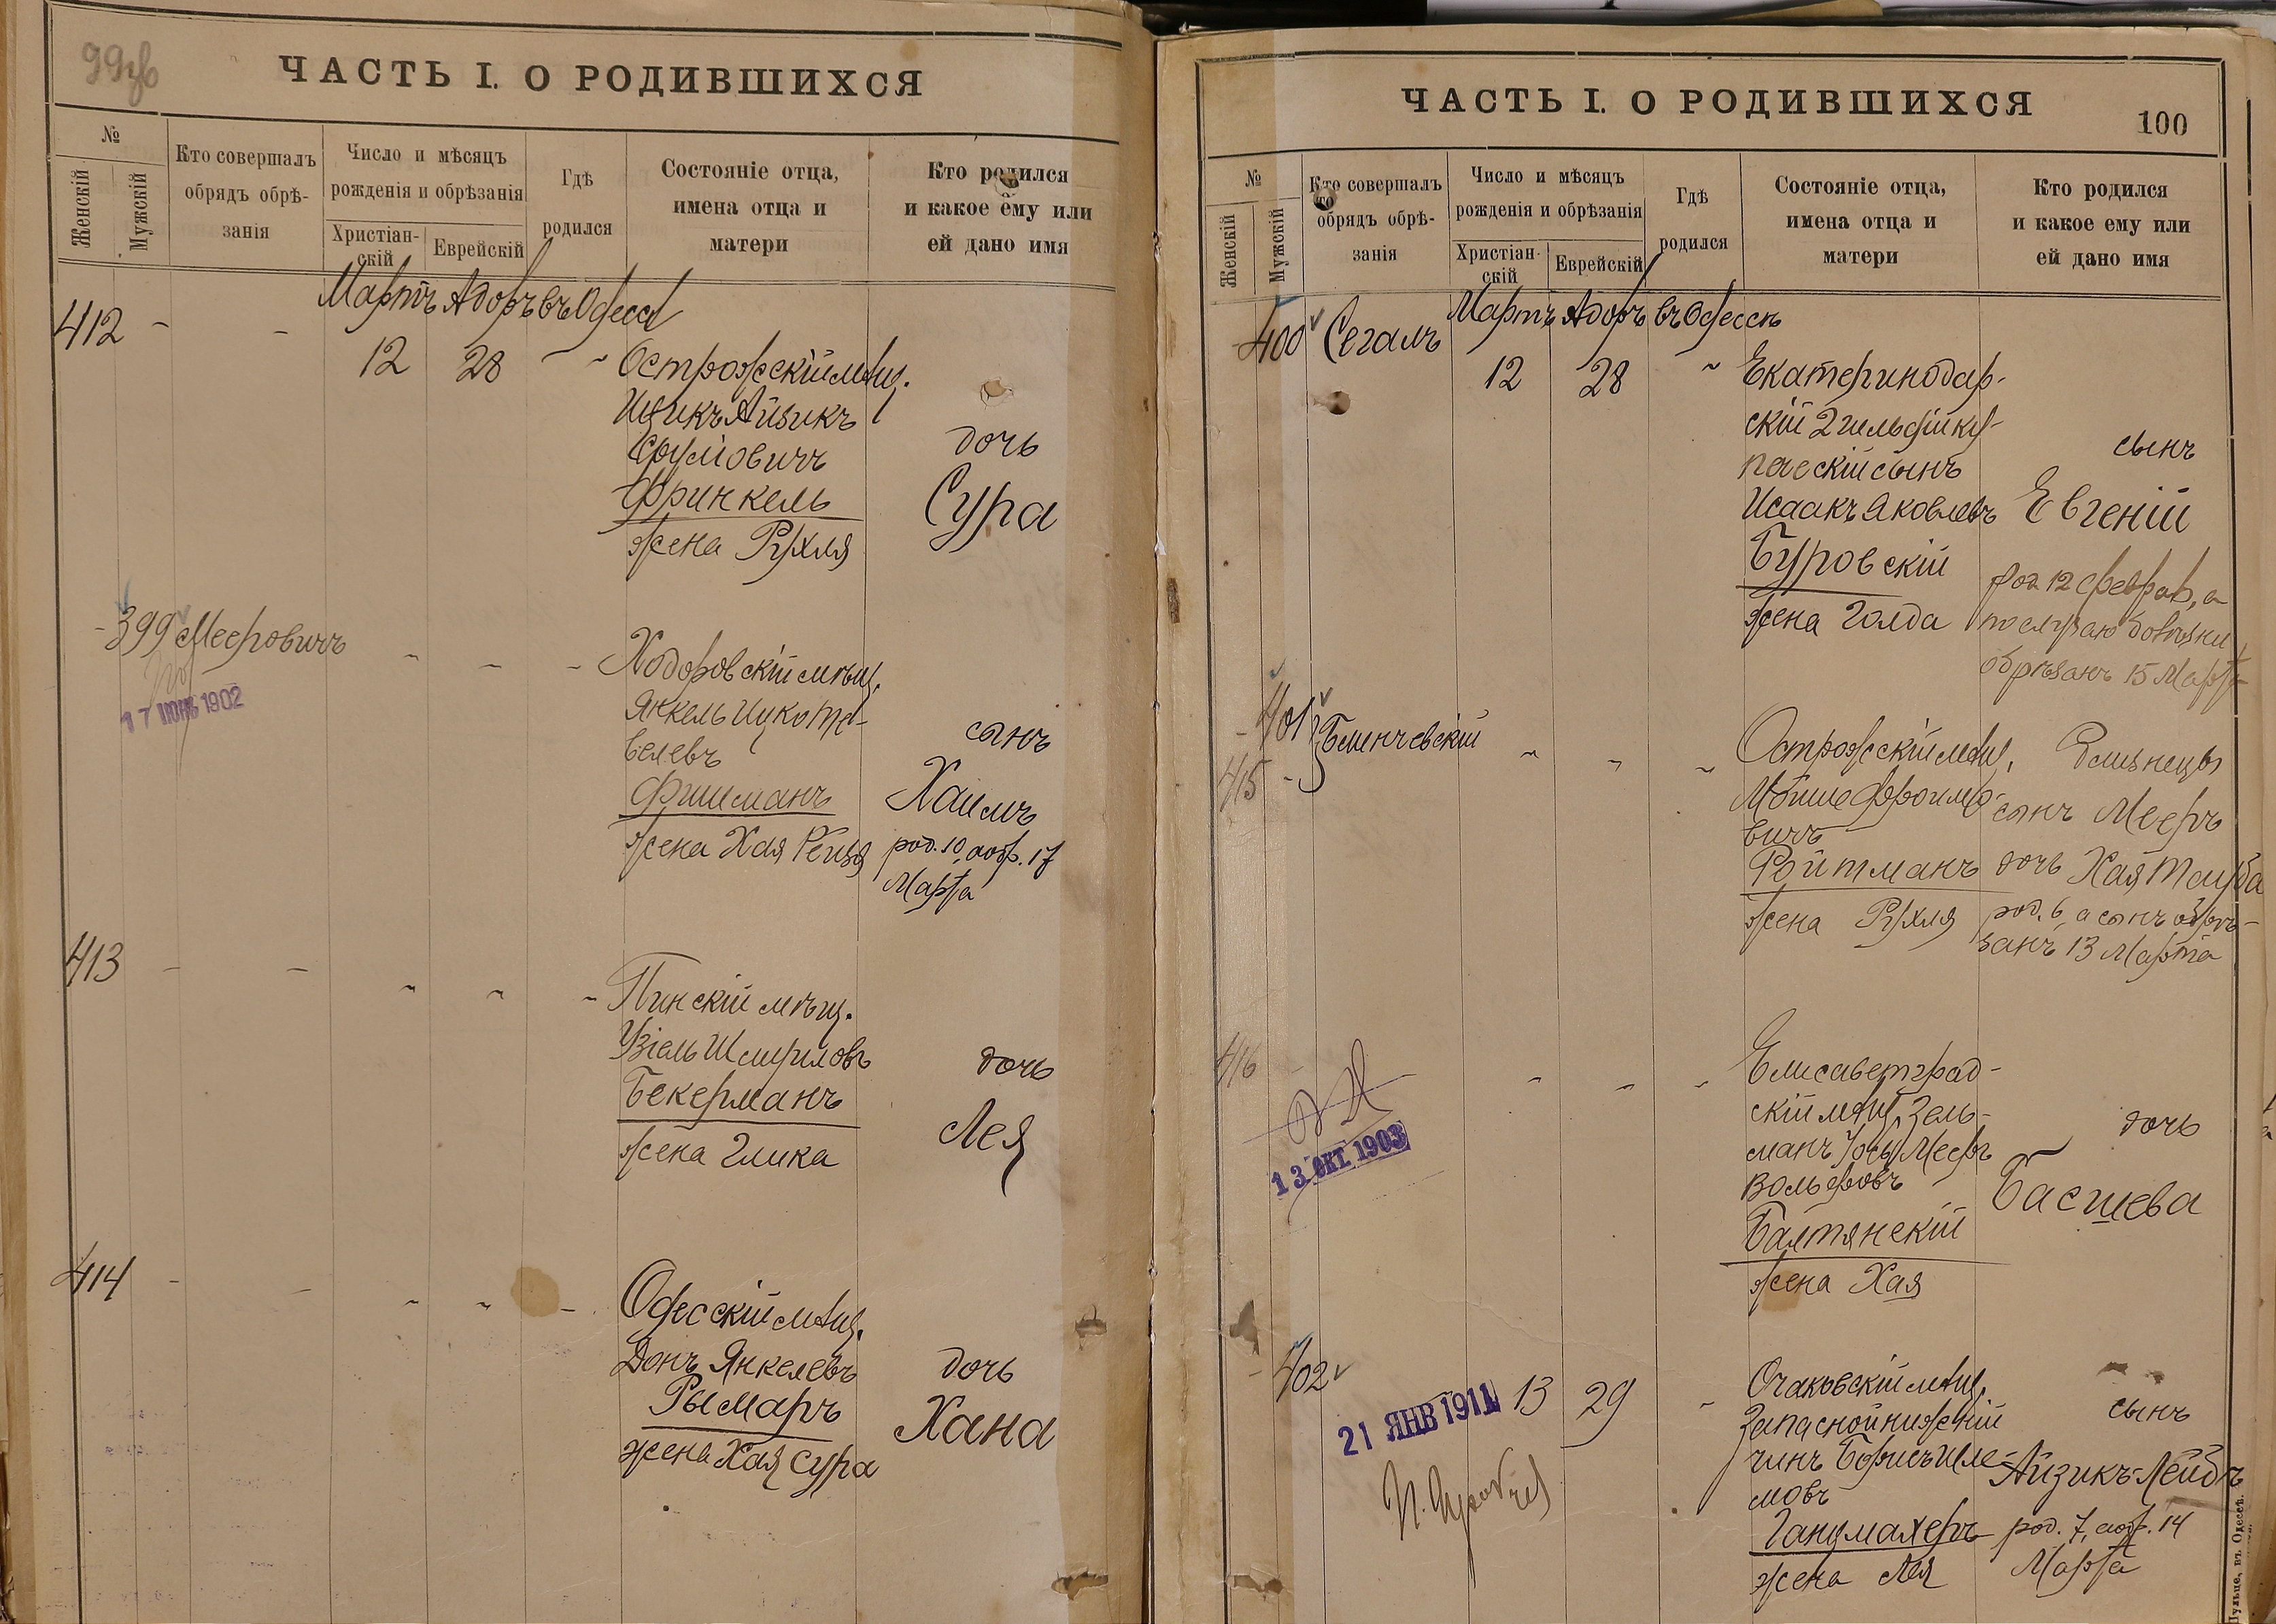 99об
ЧАСТЬ I. О РОДИВШИХСЯ
№
Женскій
Мужскій
Кто совершалъ
обрядъ обрѣ-
занія
Число и мѣсяцъ
рожденія и обрѣзанія
Христіан-
скій
Еврейскій
Гдѣ
родился
Состояніе отца,
имена отца и
матери
Кто родился
и какое ему или
ей дано имя
Мартъ Адоръ въ Одессѣ
412 - -
12 28 - Острожскій мѣщ.
Ицикъ Айзикъ
Сруліовичъ
дочь
Фринкель
Сура
жена Рухля
399 Мееровичъ
- - - Ходоровскій мѣщ.
17 ИЮН 1902
Янкель Ицко Те-
велевъ
сынъ
Фишманъ
Хаимъ
жена Хая Рейзя
род. 10, аобр. 17
Марта
413 - -
- - - Пинскій мѣщ.
Узіель Шмуиловъ
дочь
Бекерманъ
Лея
жена Глика
414 - -
- - - Одесскій мѣщ.
Донъ Янкелевъ
дочь
Рымаръ
Хана
жена Хая Сура
ЧАСТЬ I. О РОДИВШИХСЯ
100
№
Женскій
Мужскій
Кто совершалъ
обрядъ обрѣ-
занія
Число и мѣсяцъ
рожденія и обрѣзанія
Христіан-
скій
Еврейскій
Гдѣ
родился
Состояніе отца,
имена отца и
матери
Кто родился
и какое ему или
ей дано имя
Мартъ Адоръ въ Одессѣ
400 Сегалъ
12 28 Екатеринодар-
скій 2 гильдіи ку-
печескій сынъ
сынъ
Исаакъ Яковлевъ
Евгеній
Буровскій
жена Голда
род 12 феврал, а
по случаю болѣзни
обрѣзанъ 15 Марта
401 Блинчевскій
415 -
Острожскій мѣщ.
Мойше Фроимо-
вичъ
Ройтманъ
жена Рухля
близнецы
сынъ Мееръ
дочь Хая Тауба
род. 6, а сынъ обрѣ-
занъ 13 Марта
416
13 ОКТ 1903
Елисаветград-
скій мѣщ. Зель-
манъ Іось Мееръ
Вольфовъ
дочь
Басшева
Балтянскій
жена Хая
402
21 ЯНВ 1911
13 29 Очаковскій мѣщ.
Запасной нижній
чинъ Борисъ Шле-
мовъ
сынъ
Айзикъ-Лейбъ
Ганцмахеръ
род. 7, аобр. 14
Марта
жена Лея